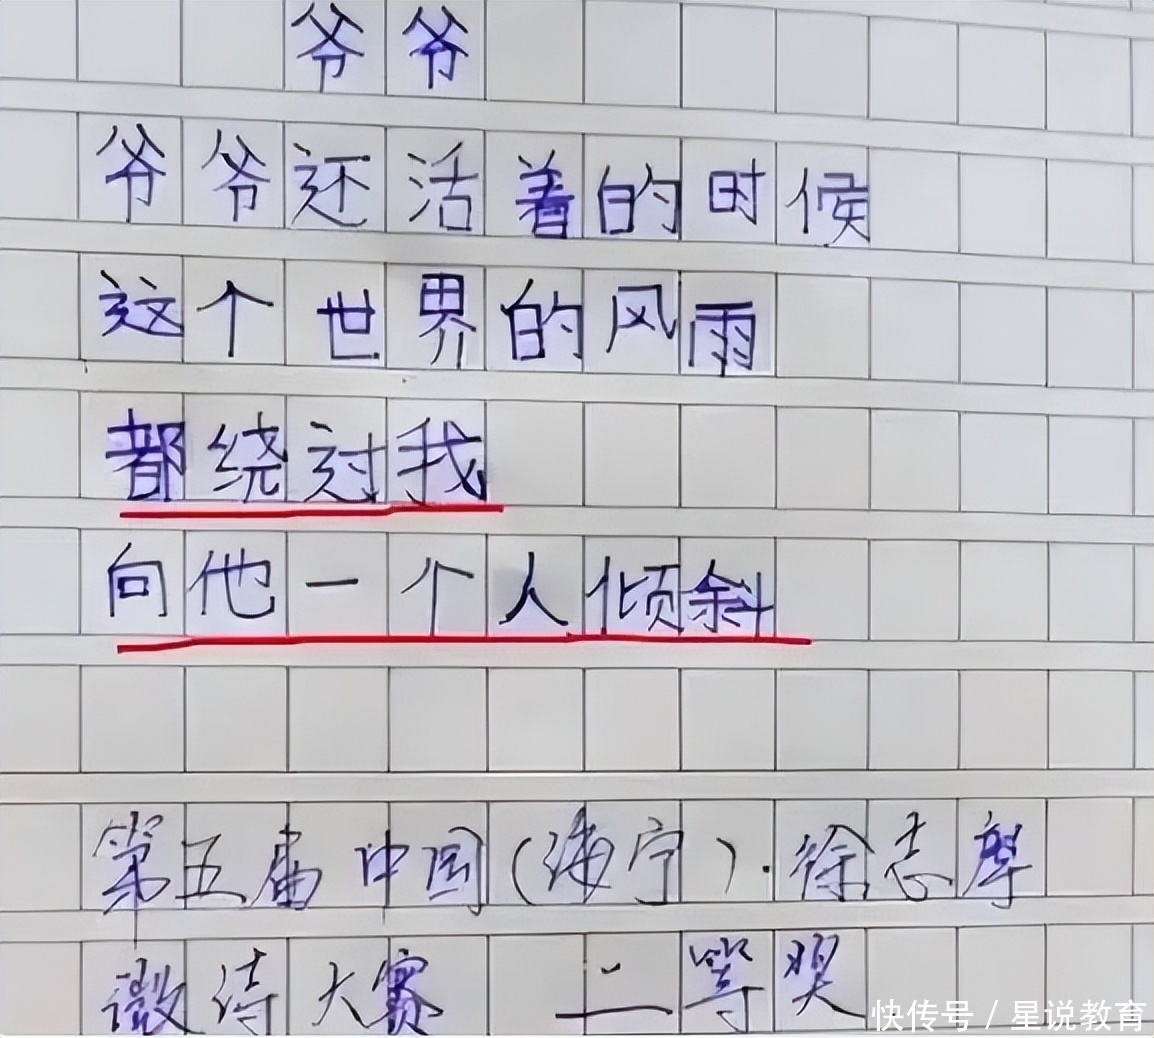 爷爷
爷爷还活着的时候
这个世界的风雨
都绕过我
向他一个人倾斜
第五届中国(海宁)·徐志摩
微诗大赛 二等奖
快传号/星说教育